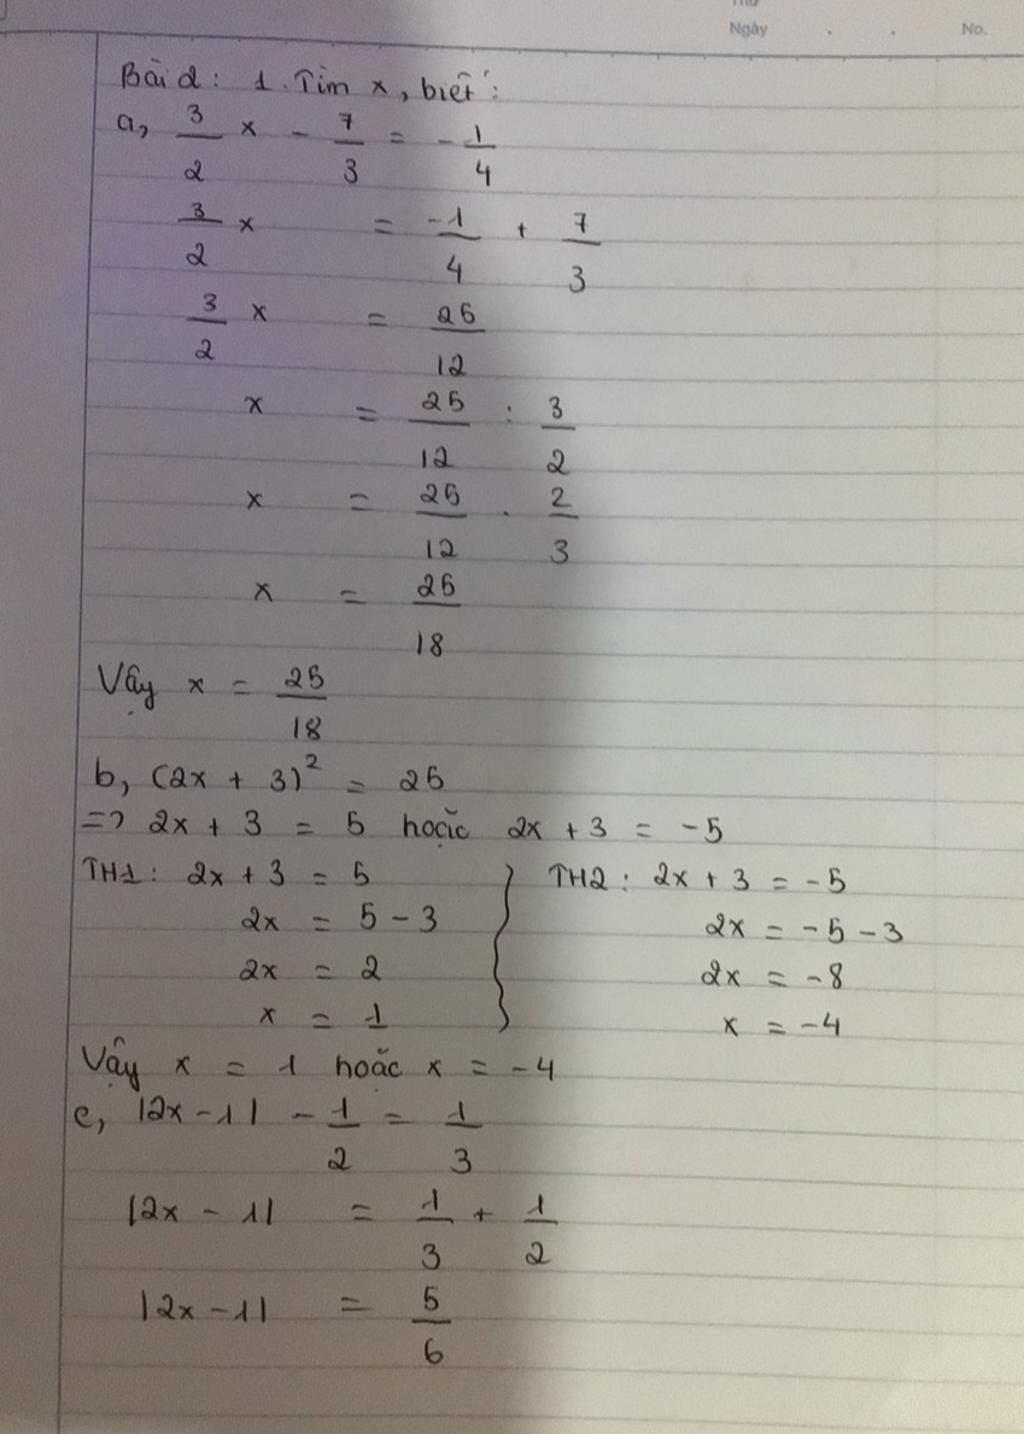 Thứ
Ngày . . No.
Bài 2: 1. Tìm x, biết:
a, 3/2 x - 7/3 = -1/4
3/2 x = -1/4 + 7/3
3/2 x = 25/12
x = 25/12 : 3/2
x = 25/12 . 2/3
x = 25/18
Vậy x = 25/18
b, (2x + 3)² = 25
=> 2x + 3 = 5 hoặc 2x + 3 = -5
TH1: 2x + 3 = 5 } TH2: 2x + 3 = -5
2x = 5 - 3 2x = -5 - 3
2x = 2 2x = -8
x = 1 x = -4
Vậy x = 1 hoặc x = -4
c, |2x - 1| - 1/2 = 1/3
|2x - 1| = 1/3 + 1/2
|2x - 1| = 5/6